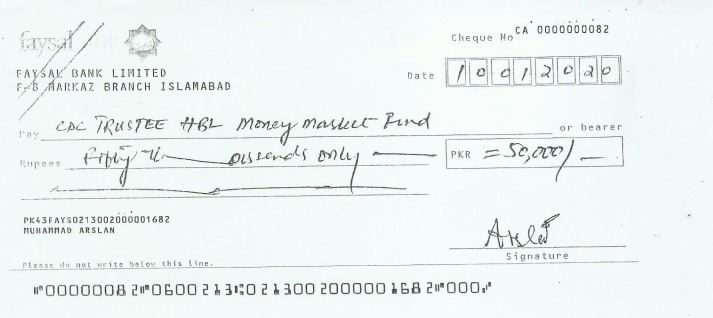 faysal
Cheque No CA 0000000082
FAYSAL BANK LIMITED
F-8 MARKAZ BRANCH ISLAMABAD
Date 10012020
Pay CDC TRUSTEE HBL Money Market Fund or bearer
Rupees Fifty Th ousands only PKR =50,000/
PK43FAYS0213002000001682
MUHAMMAD ARSLAN
Arslan
Signature
Please do not write below this line.
⑈00000082⑈0600213⑆0213002000001682⑈000⑈